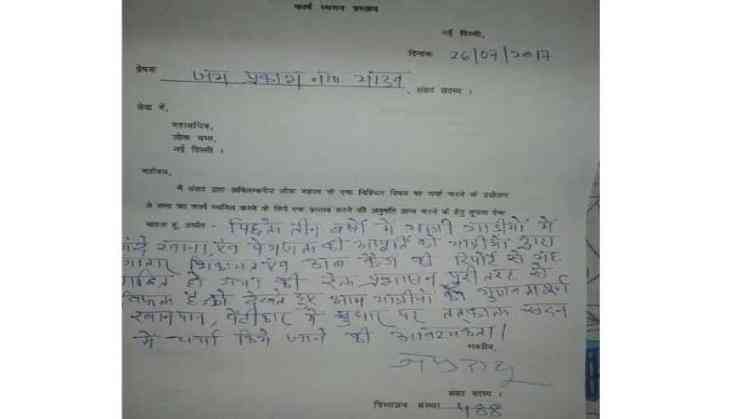 कार्य स्थगन प्रस्ताव
नई दिल्ली,
दिनांक 26/07/2017
प्रेषक
जय प्रकाश ना० यादव
, संसद सदस्य ।
सेवा में,
महासचिव,
लोक सभा,
नई दिल्ली ।
महोदय,
मैं संसद द्वारा अविलम्बनीय लोक महत्व के एक निश्चित विषय पर चर्चा करने के उद्देश्य
से सभा का कार्य स्थगित करने के लिये एक प्रस्ताव करने की अनुमति प्राप्त करने के हेतु सूचना देना
चाहता हूं, अर्थात - पिछले तीन वर्षों में यात्री गाड़ीयों में
खाना एवं पेयजल की आपूर्ति की गाड़ीयों द्वारा
शिकायत एवं की रिपोर्ट से यह
हो गया की रेल प्रशासन पुरी तरह से
विफल है को देखते हुए आम यात्रीयों के
खानपान, में सुधार पर तत्काल सदन
में चर्चा किये जाने की आवश्यकता।
भवदीय,
संसद सदस्य ।
विभाजन संख्या 488